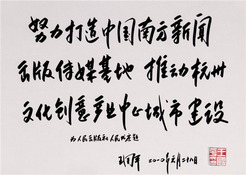 努力打造中国南方新闻
出版传媒基地 推动杭州
文化创意产业中心城市建设
为人民出版社人民书店题
二〇一〇年六月二十八日